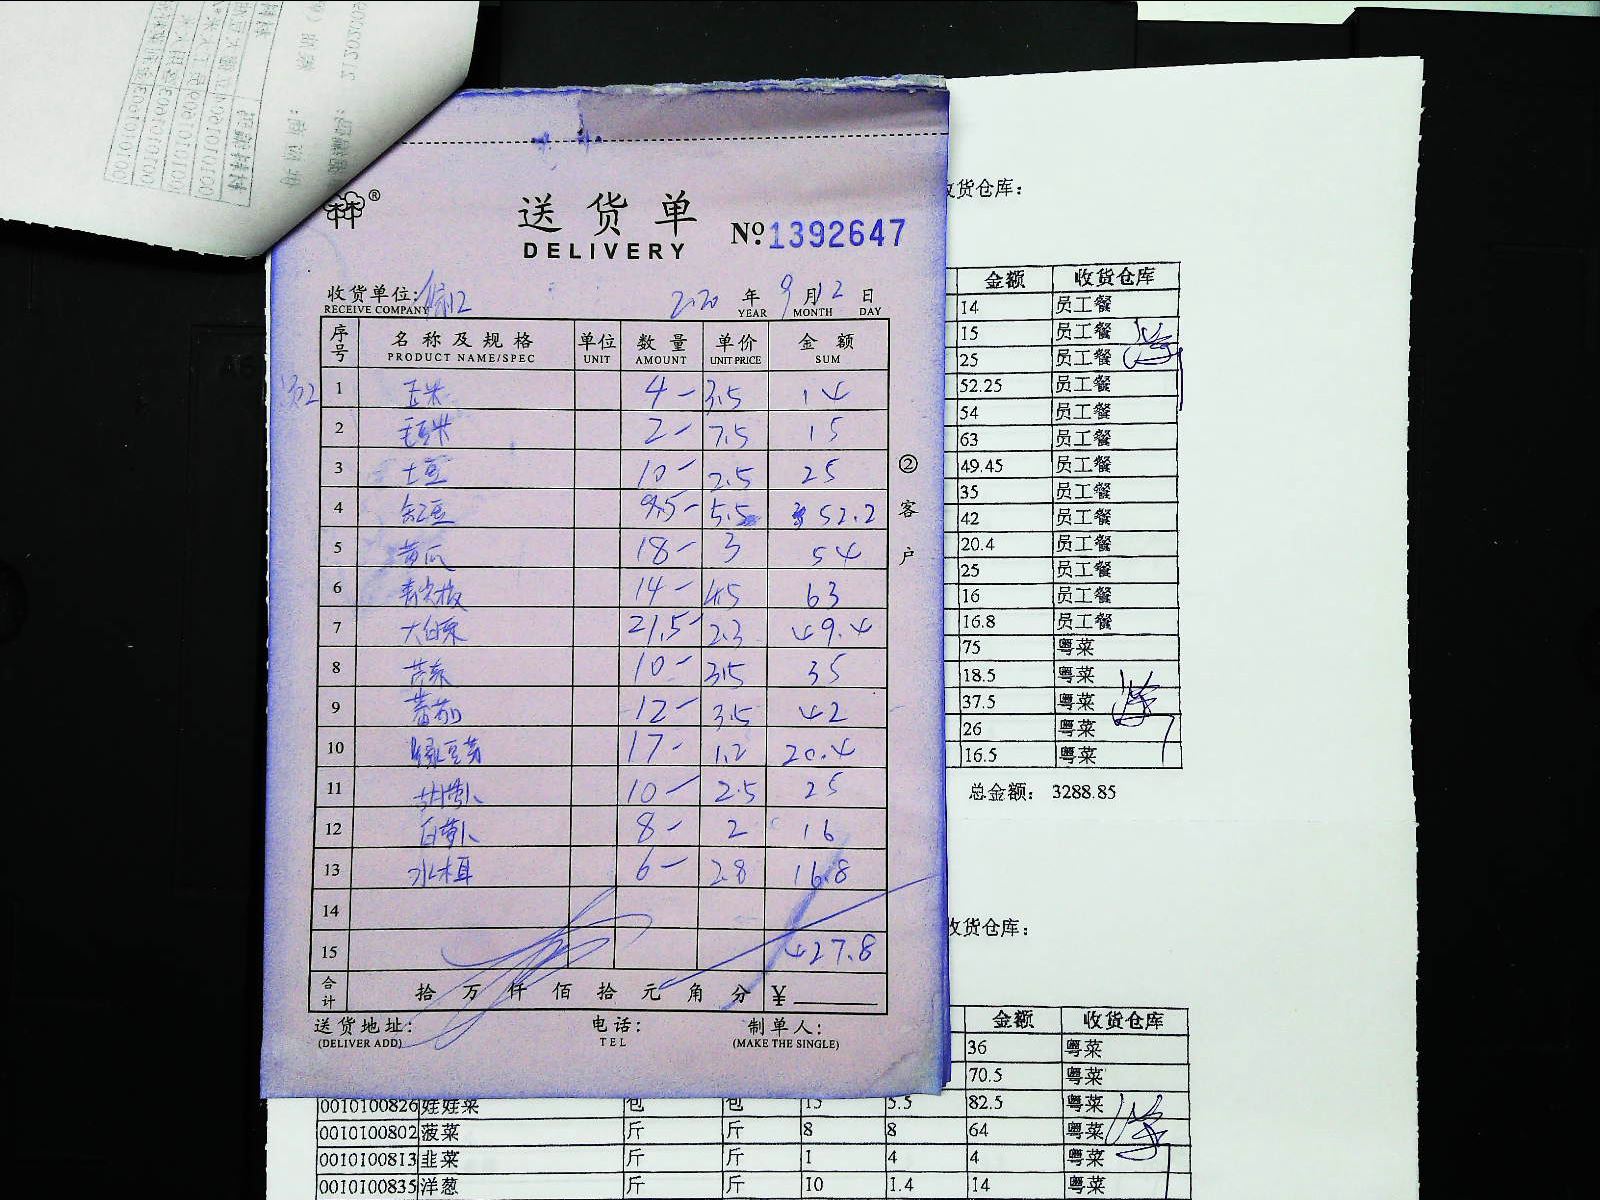 送货单
DELIVERY
№ 1392647
收货单位:
RECEIVE COMPANY
2020 年 9 月 12 日
YEAR MONTH DAY
序号 名称及规格 单位 数量 单价 金额
PRODUCT NAME/SPEC UNIT AMOUNT UNIT PRICE SUM
1 玉米 4 3.5 14
2 毛豆米 2 7.5 15
3 土豆 10 2.5 25
4 豆 9.5 5.5 52.2
5 黄瓜 18 3 54
6 青尖椒 14 4.5 63
7 大白菜 21.5 2.3 49.4
8 10 3.5 35
9 蕃茄 12 3.5 42
10 绿豆芽 17 1.2 20.4
11 胡萝卜 10 2.5 25
12 白萝卜 8 2 16
13 水木耳 6 2.8 16.8
14
15 427.8
合计 拾 万 仟 佰 拾 元 角 分 ¥
送货地址: 电话: 制单人:
(DELIVER ADD) TEL (MAKE THE SINGLE)
② 客户
收货仓库:
金额 收货仓库
14 员工餐
15 员工餐
25 员工餐
52.25 员工餐
54 员工餐
63 员工餐
49.45 员工餐
35 员工餐
42 员工餐
20.4 员工餐
25 员工餐
16 员工餐
16.8 员工餐
75 粤菜
18.5 粤菜
37.5 粤菜
26 粤菜
16.5 粤菜
总金额: 3288.85
收货仓库:
金额 收货仓库
36 粤菜
70.5 粤菜
0010100826 娃娃菜 包 包 15 5.5 82.5 粤菜
0010100802 菠菜 斤 斤 8 8 64 粤菜
0010100813 韭菜 斤 斤 1 4 4 粤菜
0010100835 洋葱 斤 斤 10 1.4 14 粤菜